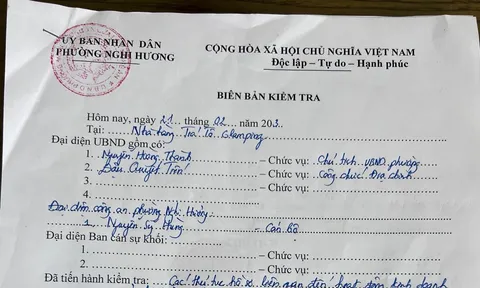 ỦY BAN NHÂN DÂN
PHƯỜNG NGHI HƯƠNG
CỘNG HÒA XÃ HỘI CHỦ NGHĨA VIỆT NAM
Độc lập – Tự do – Hạnh phúc
BIÊN BẢN KIỂM TRA
Hôm nay, ngày 21 tháng 02 năm 203
Tại: Nhà hàng Trái Tô Glamping
Đại diện UBND gồm có:
1. Nguyễn Hoàng Thanh – Chức vụ: Chủ tịch UBND phường
2. Đậu Quyết Tiến – Chức vụ: Công chức Địa chính
3. – Chức vụ:
4.
Đại diện công an phường Nghi Hương:
1. Nguyễn Sỹ Hùng – Cán bộ
Đại diện Ban cán sự khối:
1. – Chức vụ:
2. – Chức vụ:
Đã tiến hành kiểm tra: Các thủ tục hồ sơ liên quan đến hoạt động kinh doanh